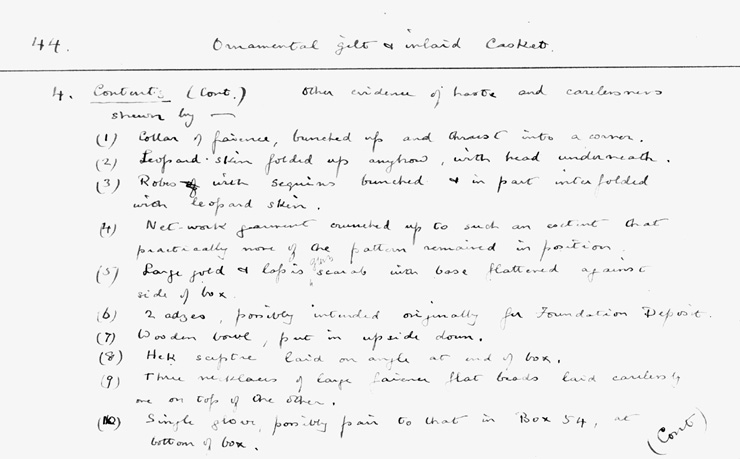 44. Ornamental gilt & inlaid Casket.
4. Contents (Cont.) Other evidence of haste and carelessness
shewn by —
(1) Collar of faience, bunched up and thrust into a corner.
(2) Leopard-skin folded up anyhow, with head underneath.
(3) Robes with sequins bunched & in part interfolded
with leopard skin.
(4) Net-work garment crunched up to such an extent that
practically none of the pattern remained in position.
(5) Large gold & lapis scarab with base flattened against
side of box.
(6) 2 adzes, possibly intended originally for Foundation Deposit.
(7) Wooden bowl, put in upside down.
(8) Hek sceptre laid on angle at end of box.
(9) Three necklaces of large faience flat beads laid carelessly
one on top of the other.
(10) Single glove, possibly pair to that in Box 54, at
bottom of box.
(Cont)